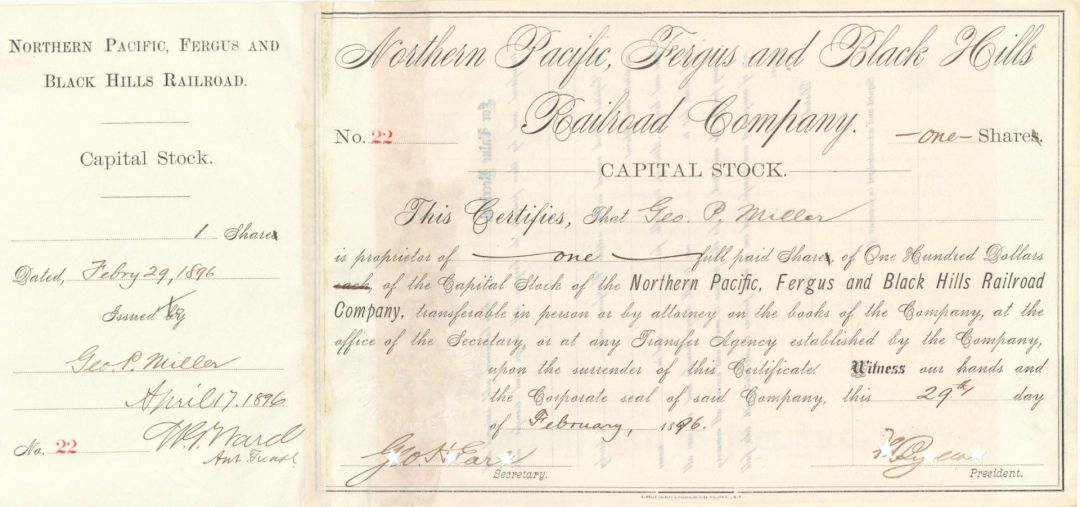 NORTHERN PACIFIC, FERGUS AND
BLACK HILLS RAILROAD.
Capital Stock.
1 Share
Dated, Febry 29, 1896
Issued
Geo. P. Miller
April 17. 1896
No. 22
Northern Pacific, Fergus and Black Hills
Railroad Company.
No. 22
—one— Share
CAPITAL STOCK.
This Certifies, That Geo. P. Miller
is proprietor of — one — full paid Share, of One Hundred Dollars
each, of the Capital Stock of the Northern Pacific, Fergus and Black Hills Railroad
Company, transferable in person or by attorney on the books of the Company, at the
office of the Secretary, or at any Transfer Agency established by the Company,
upon the surrender of this Certificate. Witness our hands and
the Corporate seal of said Company, this 29th day
of February, 1896.
Geo. H. Earl
Secretary.
President.